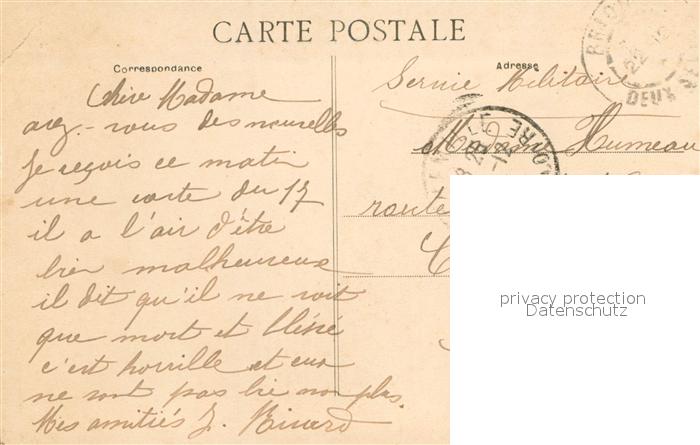 CARTE POSTALE
Correspondance
Adresse
Chère Madame
avez-vous des nouvelles
Je reçois ce matin
une carte du 17
il a l'air d'être
bien malheureux
il dit qu'il ne voit
que mort et blessé
c'est horrible et eux
ne sont pas bien non plus.
Mes amitiés J. Rivard
Service Militaire
Madame Humeau
route
DEUX
privacy protection
Datenschutz